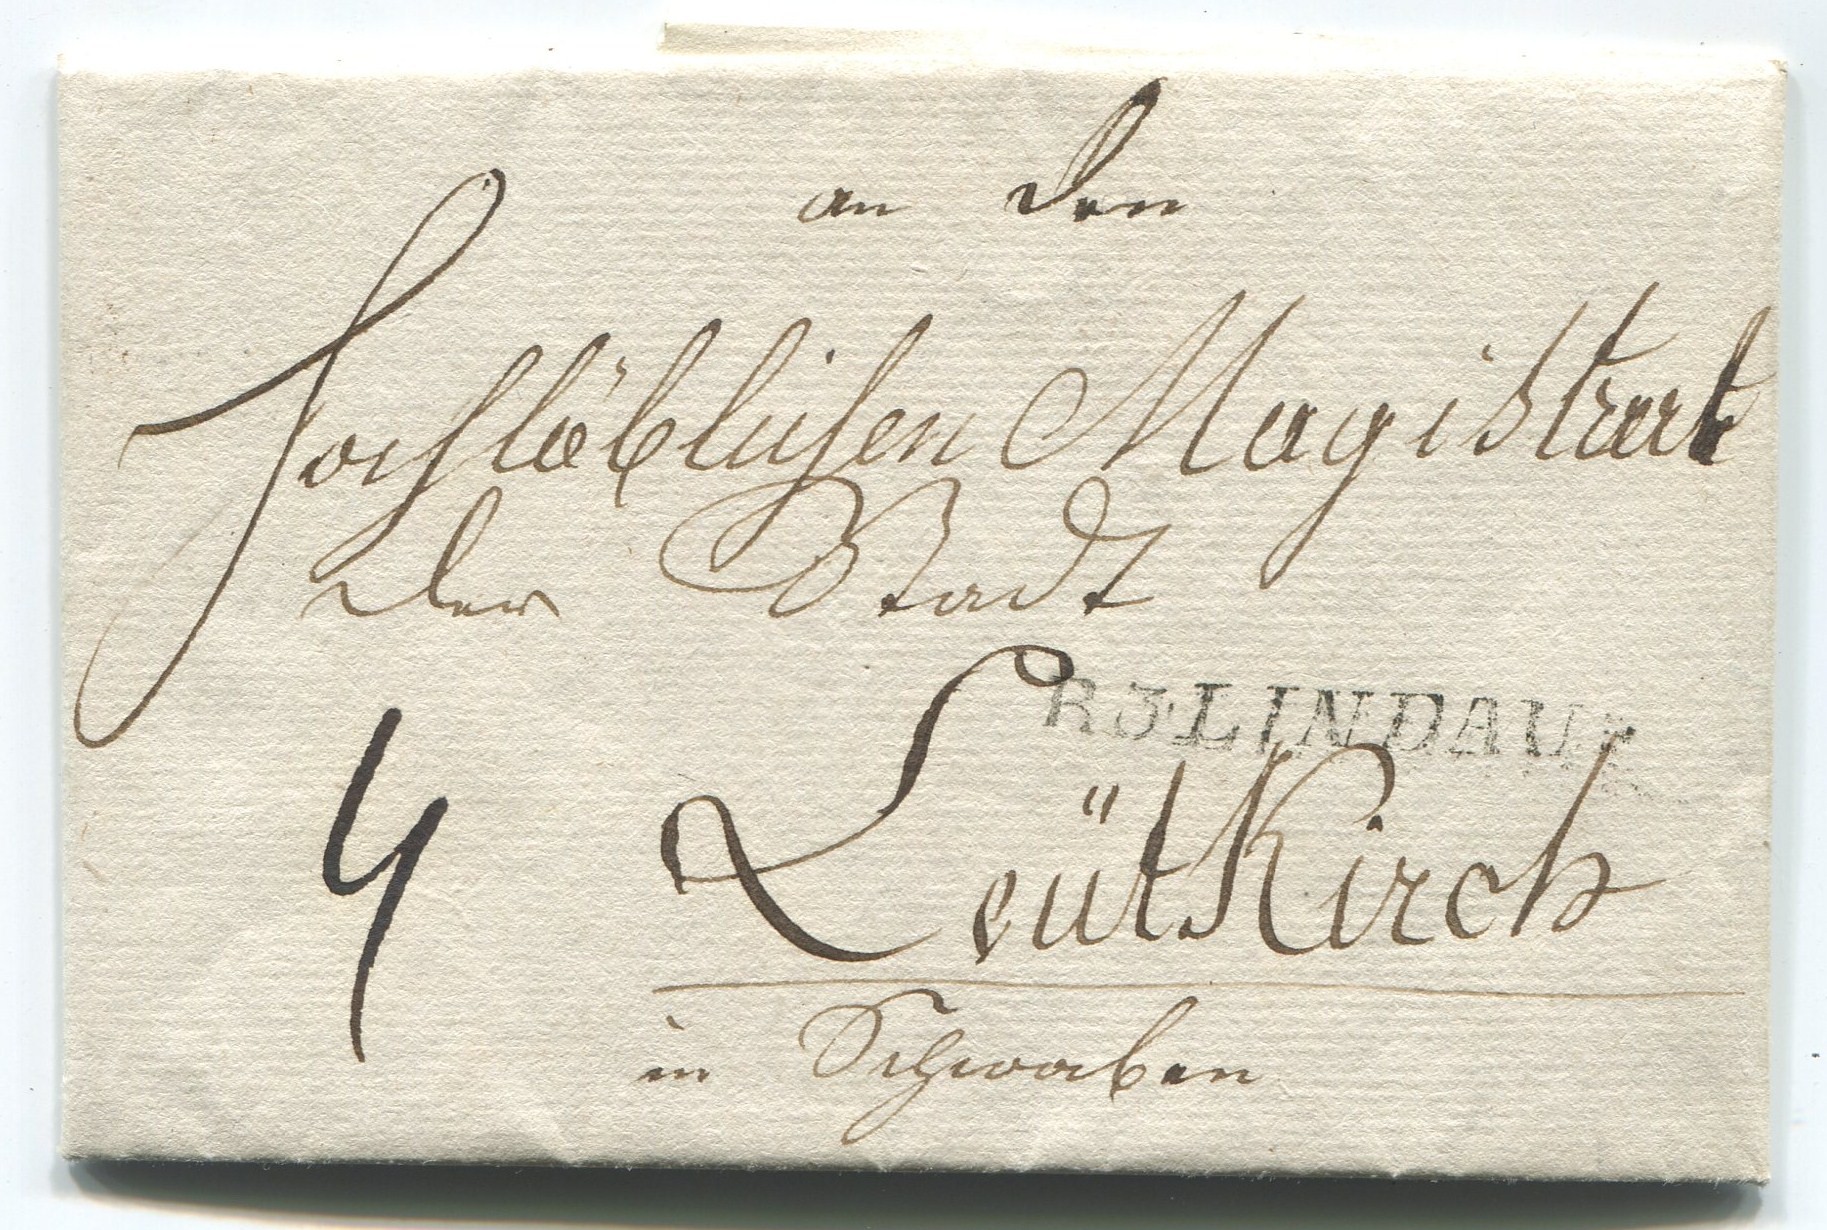 an den
Hochlöblichen Magistrat
der Stadt
R.3.LINDAU.
4
Leütkirch
in Schwaben